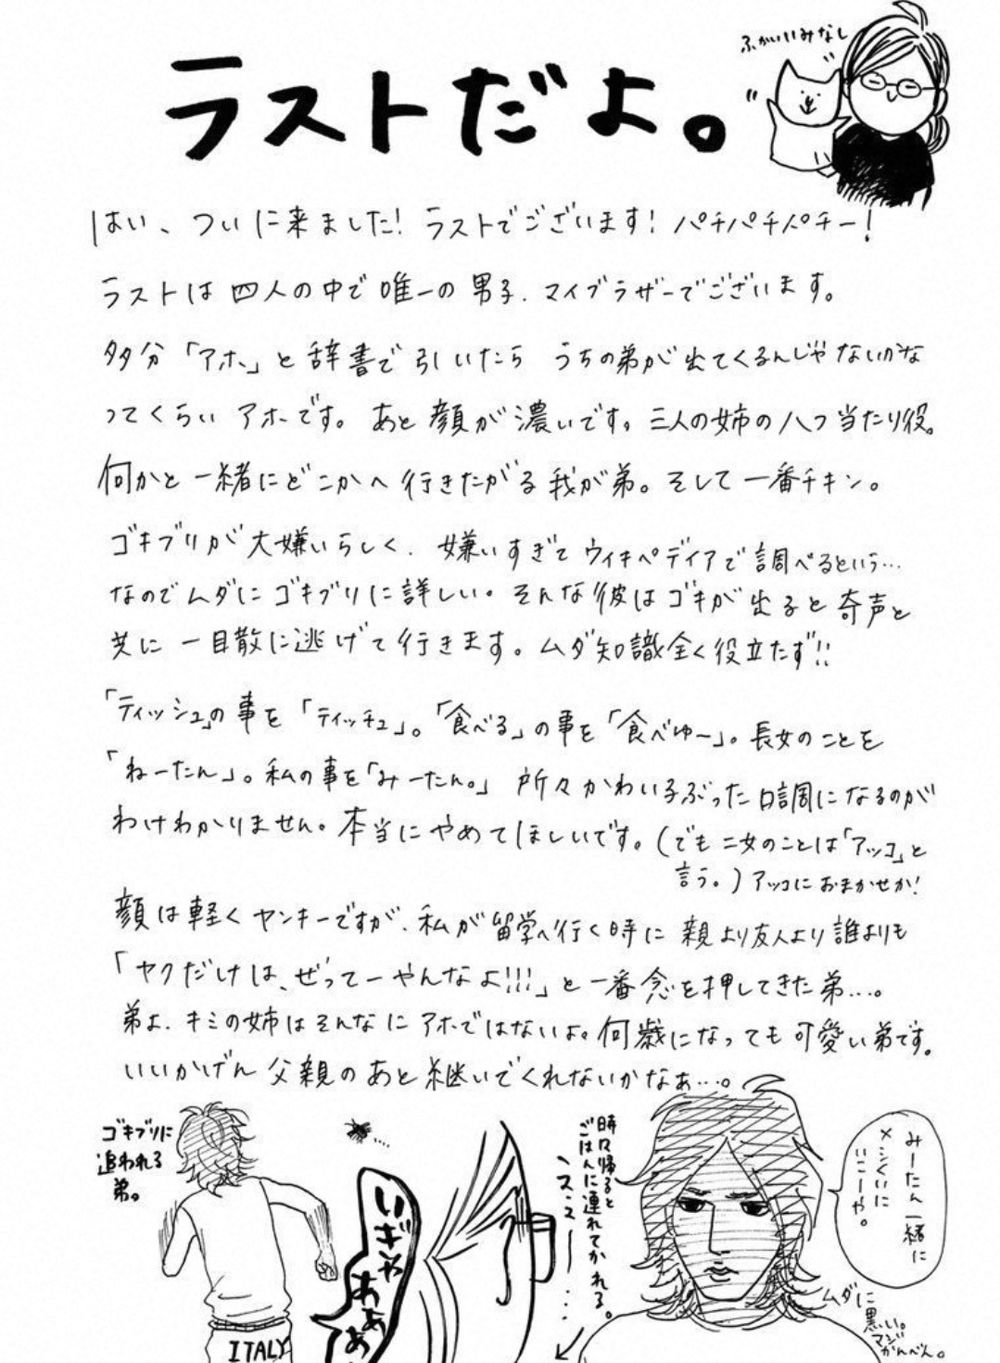 ラストだよ。
ふかいいみなし
はい、ついに来ました！ラストでございます！パチパチパチー！
ラストは四人の中で唯一の男子、マイブラザーでございます。
多分「アホ」と辞書で引いたら うちの弟が出てくるんじゃないかな
ってくらいアホです。あと顔が濃いです。三人の姉の八つ当たり役。
何かと一緒にどこかへ行きたがる我が弟。そして一番チキン。
ゴキブリが大嫌いらしく、嫌いすぎてウィキペディアで調べるという…
なのでムダにゴキブリに詳しい。そんな彼はゴキが出ると奇声と
共に一目散に逃げて行きます。ムダ知識全く役立たず!!
「ティッシュ」の事を「ティッチュ」。「食べる」の事を「食べゆ〜」。長女のことを
「ねーたん」。私の事を「みーたん。」所々かわい子ぶった口調になるのが
わけわかりません。本当にやめてほしいです。(でも二女のことは「アッコ」と
言う。)アッコにおまかせか！
顔は軽くヤンキーですが、私が留学へ行く時に親より友人より誰よりも
「ヤクだけは、ぜってーやんなよ!!!」と一番念を押してきた弟…。
弟よ、キミの姉はそんなにアホではないよ。何歳になっても可愛い弟です。
いいかげん父親のあと継いでくれないかなぁ…。
ゴキブリに
追われる
弟。
いぎゃ
あああ
ITALY
時々帰ると
ごはんに連れてかれる。
みーたん一緒に
メシくいに
いこーや。
ムダに
黒い。
マジ
かんべん。